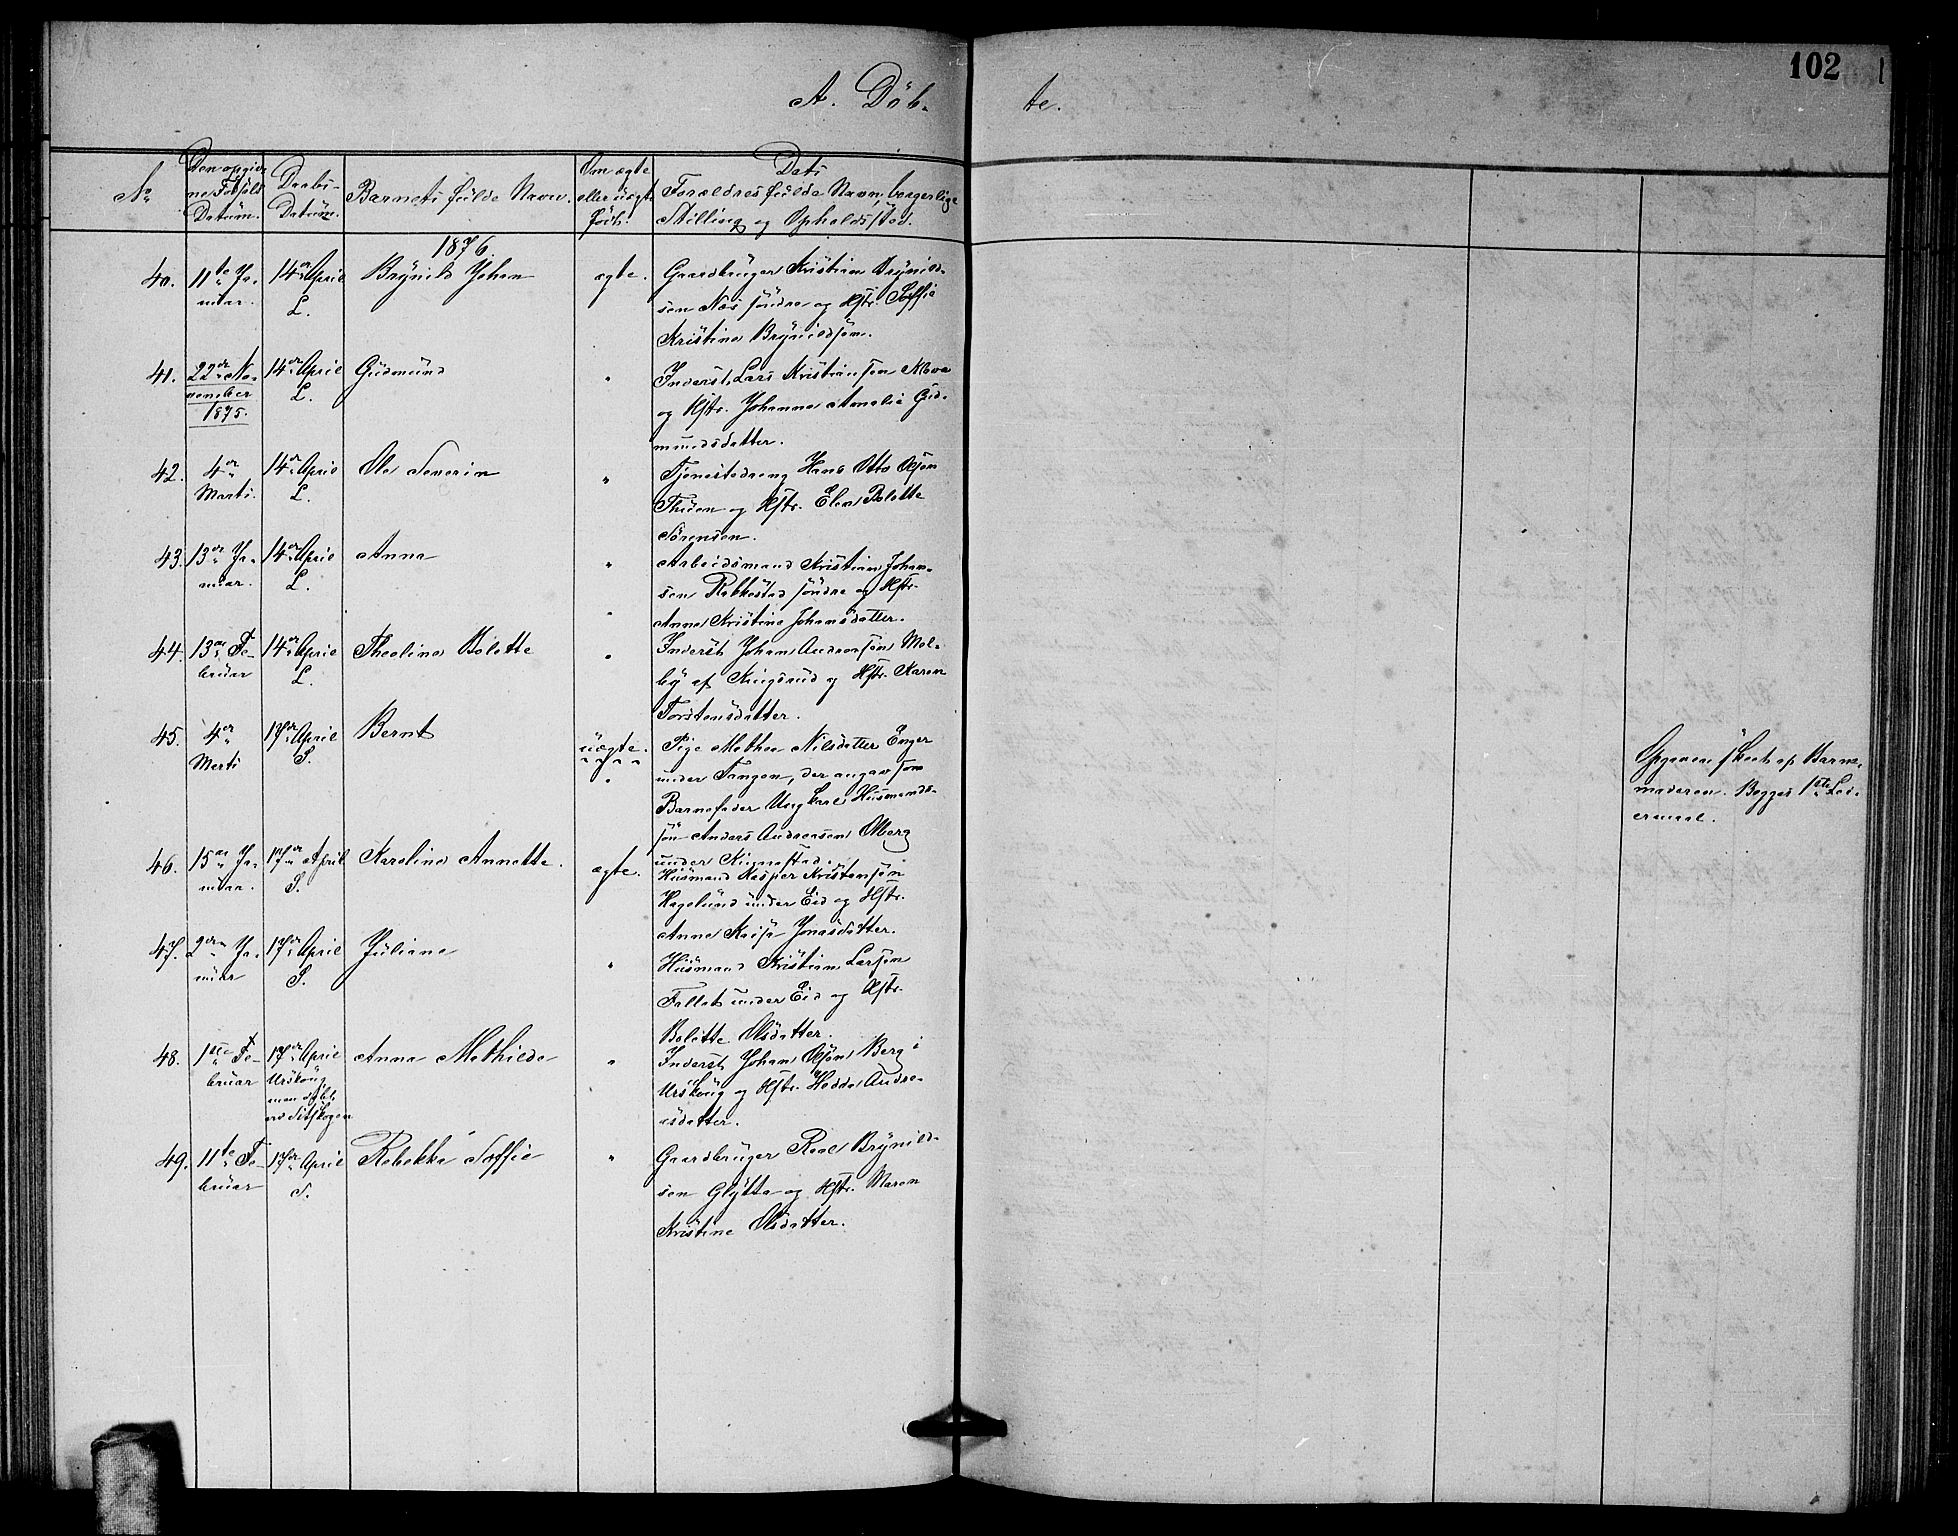 102
A. Döb-
te.
No
Den opgiv
ne Födsels
Datum.
Daabs-
Datum.
Barnets fulde Navn.
Om ægte
eller uægte
födt.
Dets
Forældres fulde Navn, borgerlige
Stilling og Opholdssted.
1876.
40. 11te Ja-
nuar.
14de April
L.
Brynild Johan
ægte.
Gaardbruger Kristian Brynild-
sen Næs söndre og Hstr. Soffie
Kristine Brynildsen.
41. 22de No-
vember
1875.
14de April
L.
Gudmund
"
Inderst Lars Kristiansen
og Hstr. Johanne Amalie Gud-
mundsdatter.
42. 4de
Marts.
14de April
L.
Ole Severin
"
Tjenestedreng Hans Otto Olsen
og Hstr. Elen Bolette
Sörensen.
43. 13de Ja-
nuar.
14de April
L.
Anna
"
Arbeidsmand Kristian Johan-
sen Rakkestad söndre og Hstr.
Anne Kristine Johansdatter.
44. 13de Fe-
bruar
14de April
L.
Theoline Bolette
"
Inderst Johan Andreasen Mel-
by af Kingsrud og Hstr. Karen
Torstensdatter.
45. 4de
Marts
17de April
S.
Bernt
uægte.
"
Pige Mathea Nilsdatter Enger
under Tangen, der angav som
Barnefader Ungkarl Husmands-
sön Anders Andreasen Olberg
under
Opgaven skeet af Barne-
moderen. Begges 1ste Lei-
ermaal.
46. 15de Ja-
nuar.
17de April
S.
Karoline Annette.
ægte.
Husmand Kasper Kristensen
Hagelund under Eid og Hstr.
Anne Kaisa Jonasdatter.
47. 2den Ja-
nuar
17de April
S.
Juliane
"
Husmand Kristian Larsen
Fallet under Eid og Hstr.
Bolette Olsdatter.
48. 1ste Fe-
bruar
17de April
Urskoug
men döbt
ved Setskogen
Anna Mathilde
"
Inderst Johan Olsen Berg i
Urskoug og Hstr. Hedda Andre-
asdatter.
49. 11te Fe-
bruar
17de April
S.
Rebekka Soffie
"
Gaardbruger Roal Brynild-
sen Glytta og Hstr. Maren
Kristine Olsdatter.